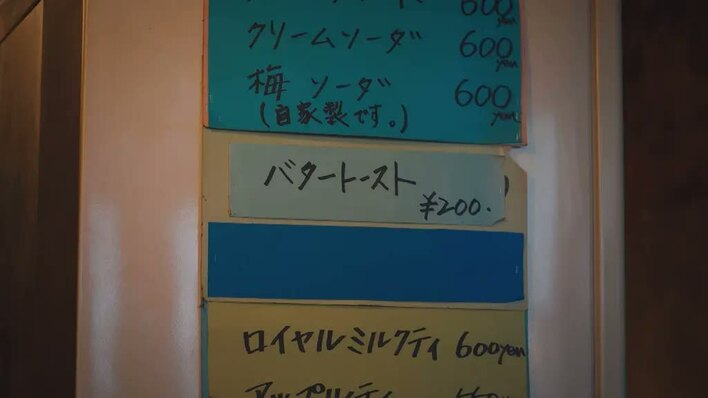 600
クリームソーダ 600 yen
梅ソーダ 600 yen
(自家製です。)
バタートースト
¥200.
ロイヤルミルクティ 600yen